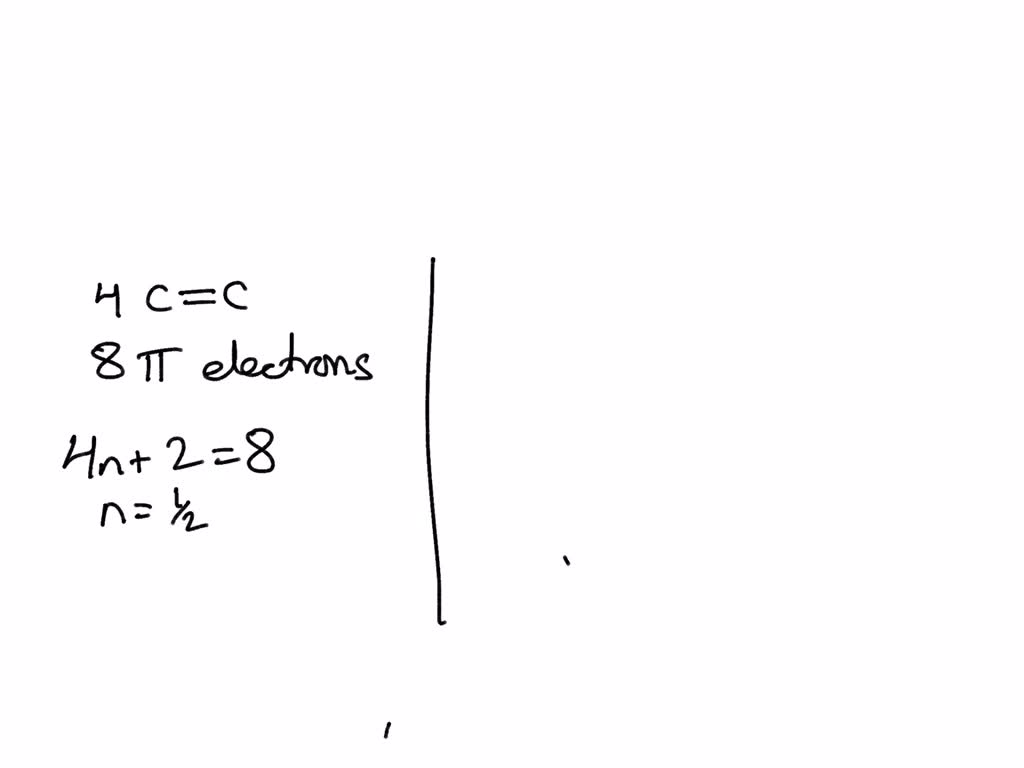 4 C=C
8 π electrons
4n+2=8
n=1/2